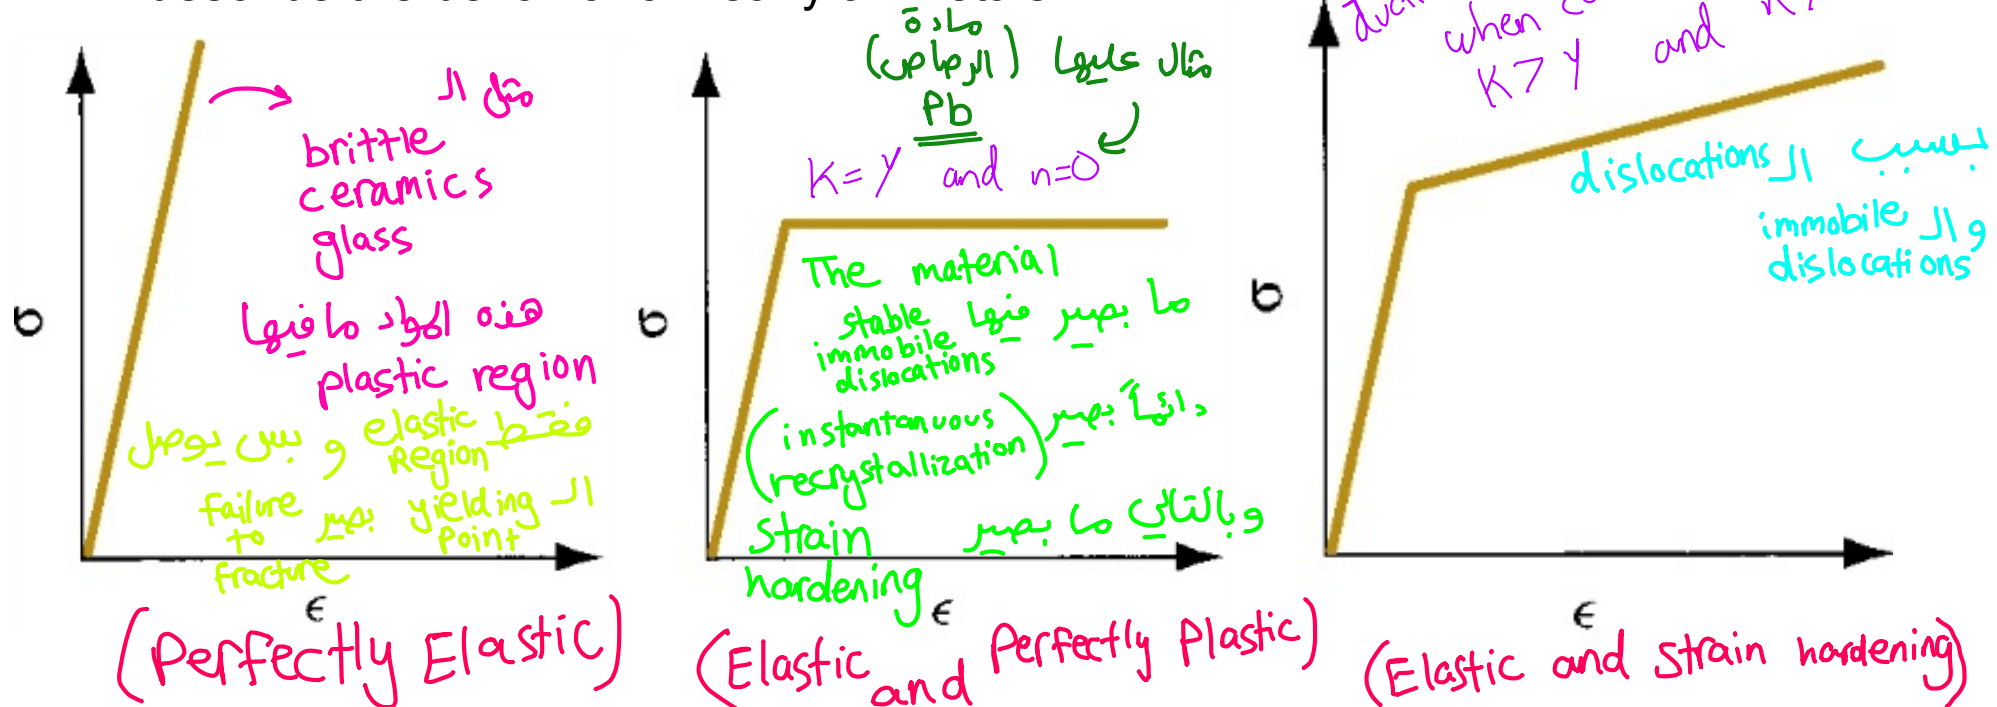 مثل الـ
brittle
ceramics
glass
هذه المواد ما فيها
plastic region
فقط elastic Region و بس يوصل
الـ yielding point بصير failure to fracture
σ
ϵ
(Perfectly Elastic)
مادة
مثال عليها (الرصاص)
Pb
K = Y and n=0
The material
ما بصير فيها stable immobile dislocations
دائماً بصير (instantanuous recrystallization)
و بالتالي ما بصير strain hardening
σ
ϵ
(Elastic and Perfectly Plastic)
when
K > Y and
بسبب الـ dislocations
و الـ immobile dislocations
σ
ϵ
(Elastic and strain hardening)